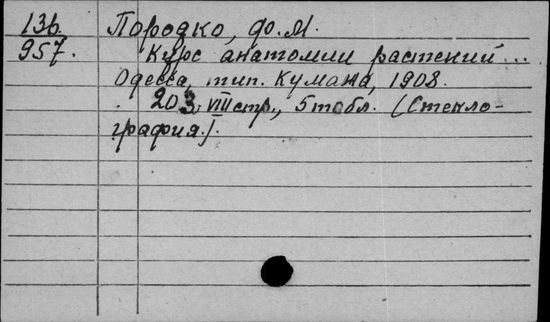 136. Породко, Ф. М.
957. Курс анатомии растений ...
Одесса, тип. Кумана, 1908.
203, VIII стр., 5 табл. (Стекло-
графия.).